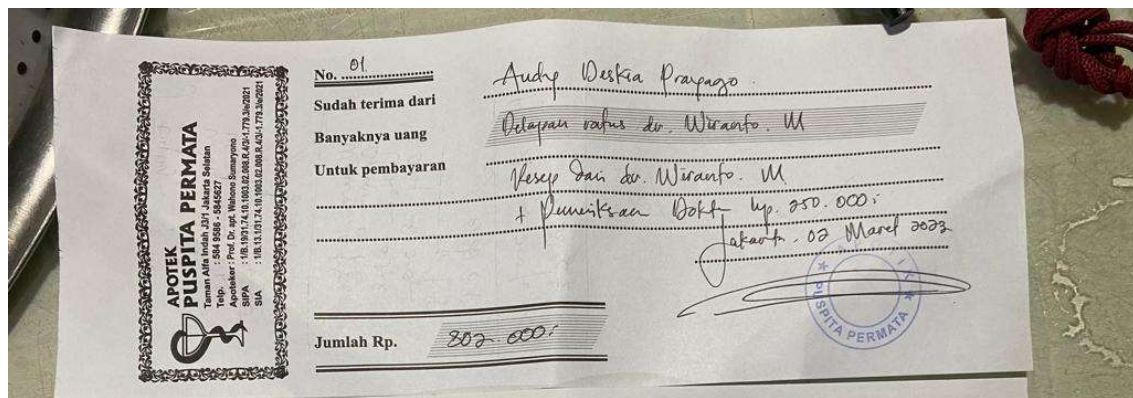 APOTEK
PUSPITA PERMATA
Taman Alfa Indah J3/1 Jakarta Selatan
Telp. : 584 9586 - 5845627
Apoteker : Prof. Dr. apt. Wahono Sumaryono
SIPA : 1/B.19/31.74.10.1003.02.008.R.4/3/-1.779.3/e/2021
SIA : 1/B.13.1/31.74.10.1003.02.008.R.4/3/-1.779.3/e/2021
No. 01
Sudah terima dari Audry Deskia Prayago
Banyaknya uang Delapan ratus dr. Wiranto. M
Untuk pembayaran Resep dari dr. Wiranto. M
+ Pemeriksaan Dokter Rp. 250.000
Jakarta. 02 Maret 2023
Jumlah Rp. 802.000
PUSPITA PERMATA